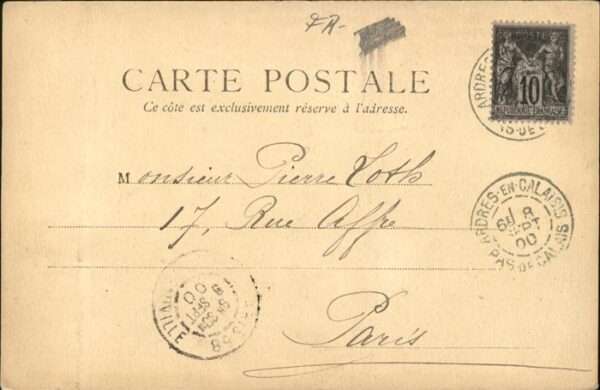 CARTE POSTALE
Ce côté est exclusivement réservé à l'adresse.
POSTE
10
REPUBLIQUE FRANÇAISE
ARDRES
Monsieur Pierre Loth
17, Rue Affre
Paris
ARDRES-EN-CALAISIS
8
SEPT
00
PAS-DE-CALAIS
PARIS 58
SEPT
00